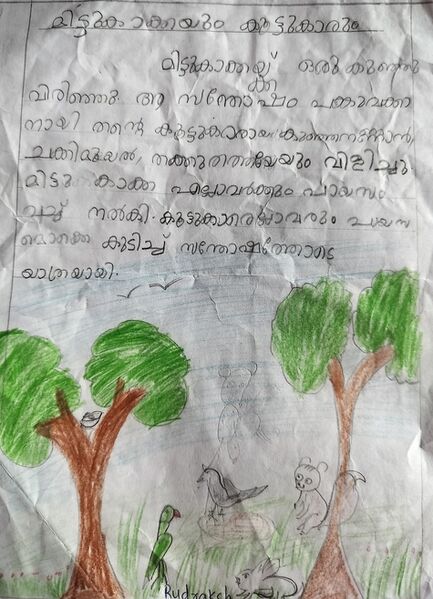 മിട്ടുകാക്കയും കൂട്ടുകാരും
മിട്ടുകാക്കയ്ക്ക് ഒരു കുഞ്ഞു
വിരിഞ്ഞു. ആ സന്തോഷം പങ്കുവക്കാ
നായി തന്റെ കൂട്ടുകാരായ
ചക്കിമുയൽ, തത്തയേയും വിളിച്ചു.
മിട്ടു കാക്ക എല്ലാവർക്കും പായസം
വച്ച് നൽകി. കൂട്ടുകാരെല്ലാവരും പായസ
മൊക്കെ കുടിച്ച് സന്തോഷത്തോടെ
യാത്രയായി.
Rudraksh